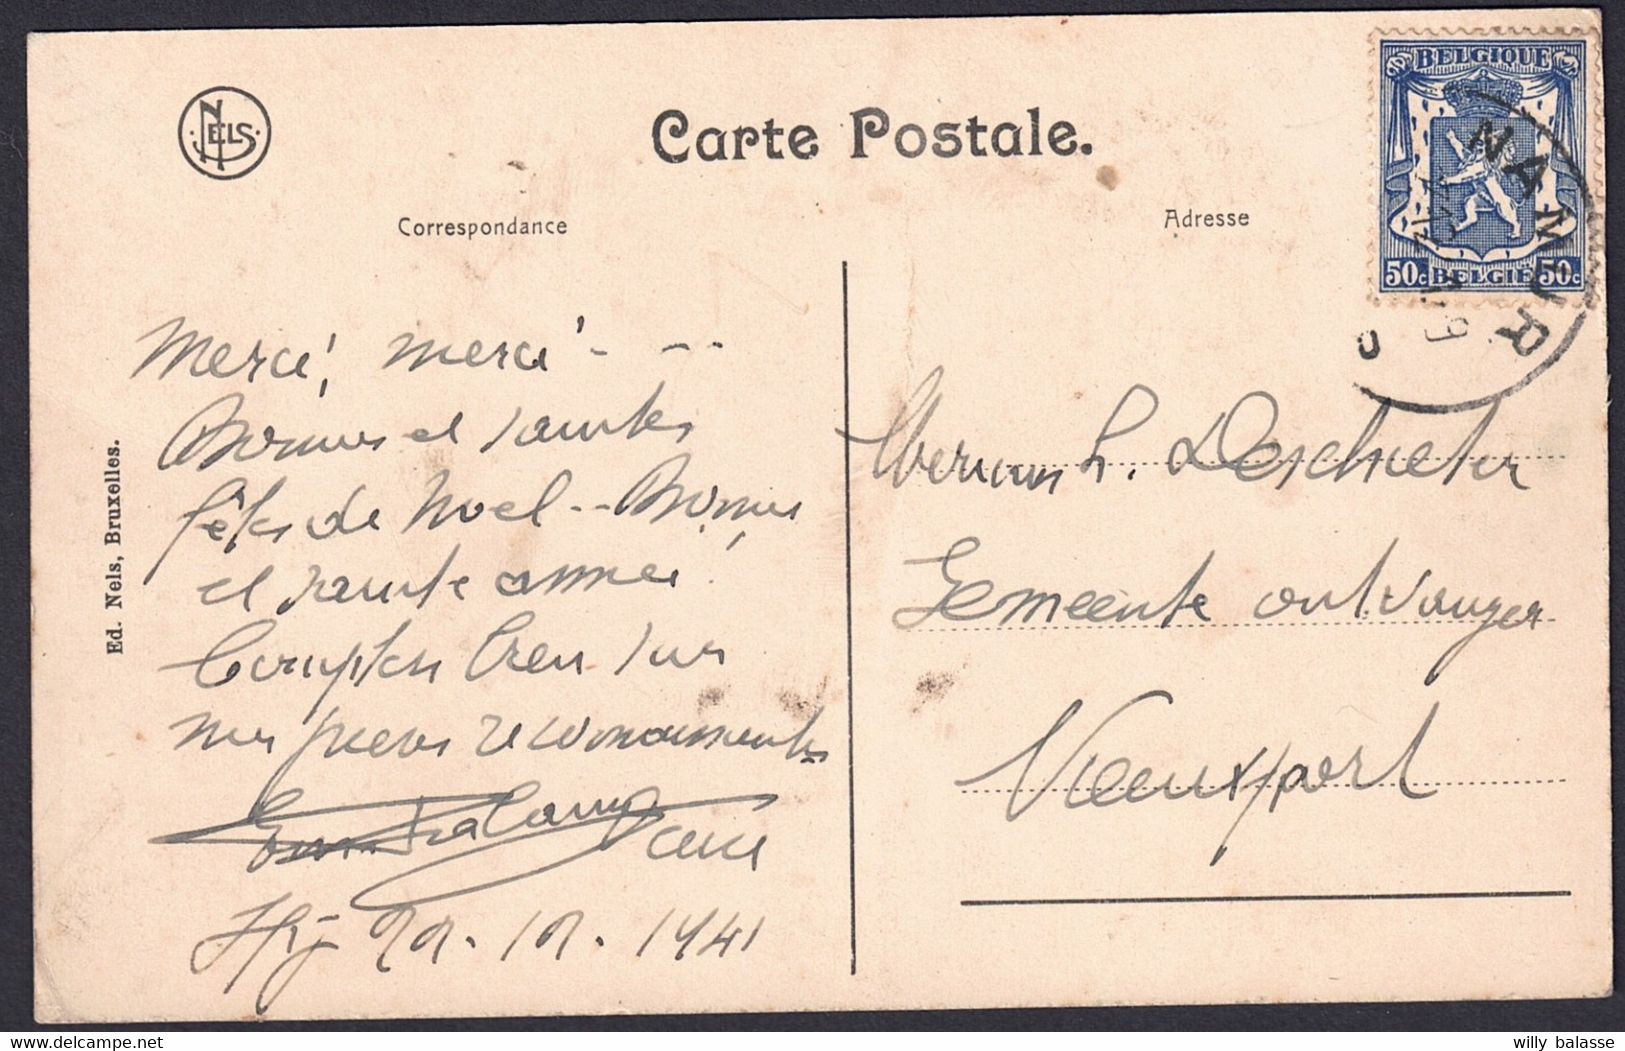 NELS
Carte Postale.
Correspondance
Adresse
BELGIQUE
50c BELGIË 50c
NAMUR
Ed. Nels, Bruxelles.
Merci, merci - - -
Bonnes et saintes
fêtes de Noel -- Bonne
et sainte année!
Comptez bien sur
mes pieux
22.12.1941
L. Deschieter
Gemeente ontvanger
Nieuwpoort
willy balasse